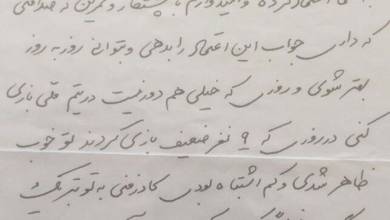 اعتماد کرده و امیدوارم با پشتکار و تمرین که
که داری جواب این اعتماد را بدهی و بتوانی روز به روز
بهتر شوی و روزی که خیلی هم دور نیست در تیم ملی بازی
کنی در روزی که ۹ نفر ضعیف بازی کردند تو خوب
ظاهر شدی و کم اشتباه بودی کادر فنی به تو تبریک